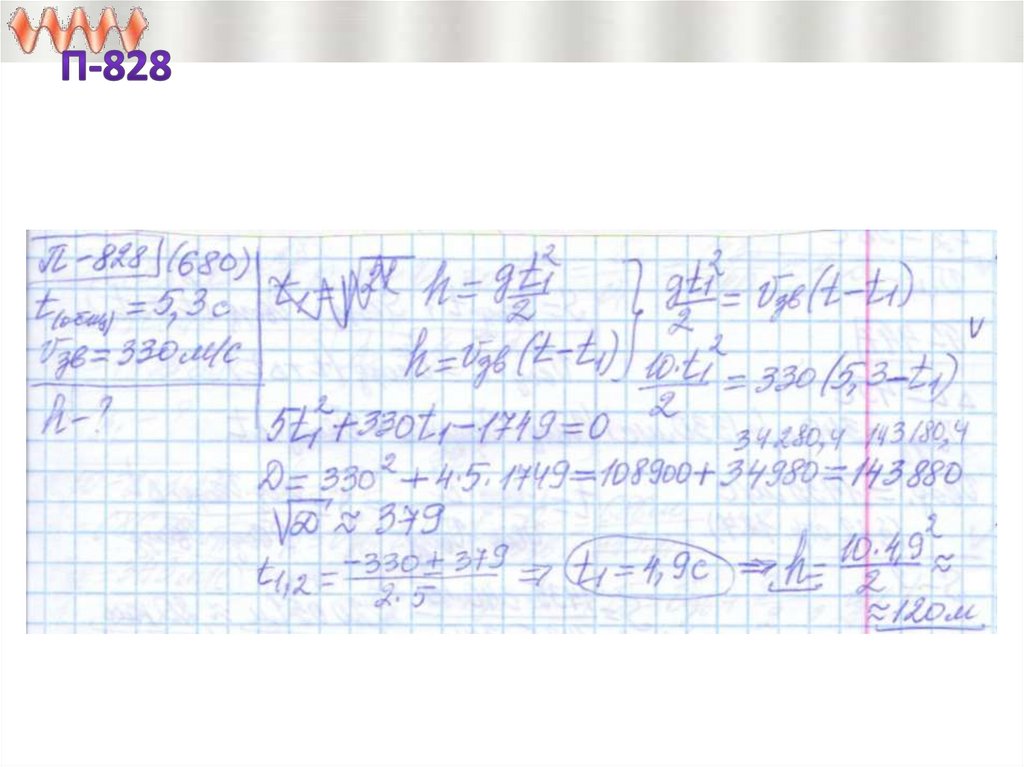 П-828
П-828 (680)
t(общ) = 5,3 с
vзв = 330 м/с
h - ?
h = gt₁²/2
h = vзв (t - t₁)
gt₁²/2 = vзв (t - t₁)
10·t₁²/2 = 330 (5,3 - t₁)
v
5t₁² + 330t₁ - 1749 = 0
34280,4 143180,4
D = 330² + 4·5·1749 = 108900 + 34980 = 143880
√D ≈ 379
t₁,₂ = (-330 ± 379)/(2·5) ⇒ t₁ = 4,9 с ⇒ h = 10·4,9²/2 ≈
≈ 120 м